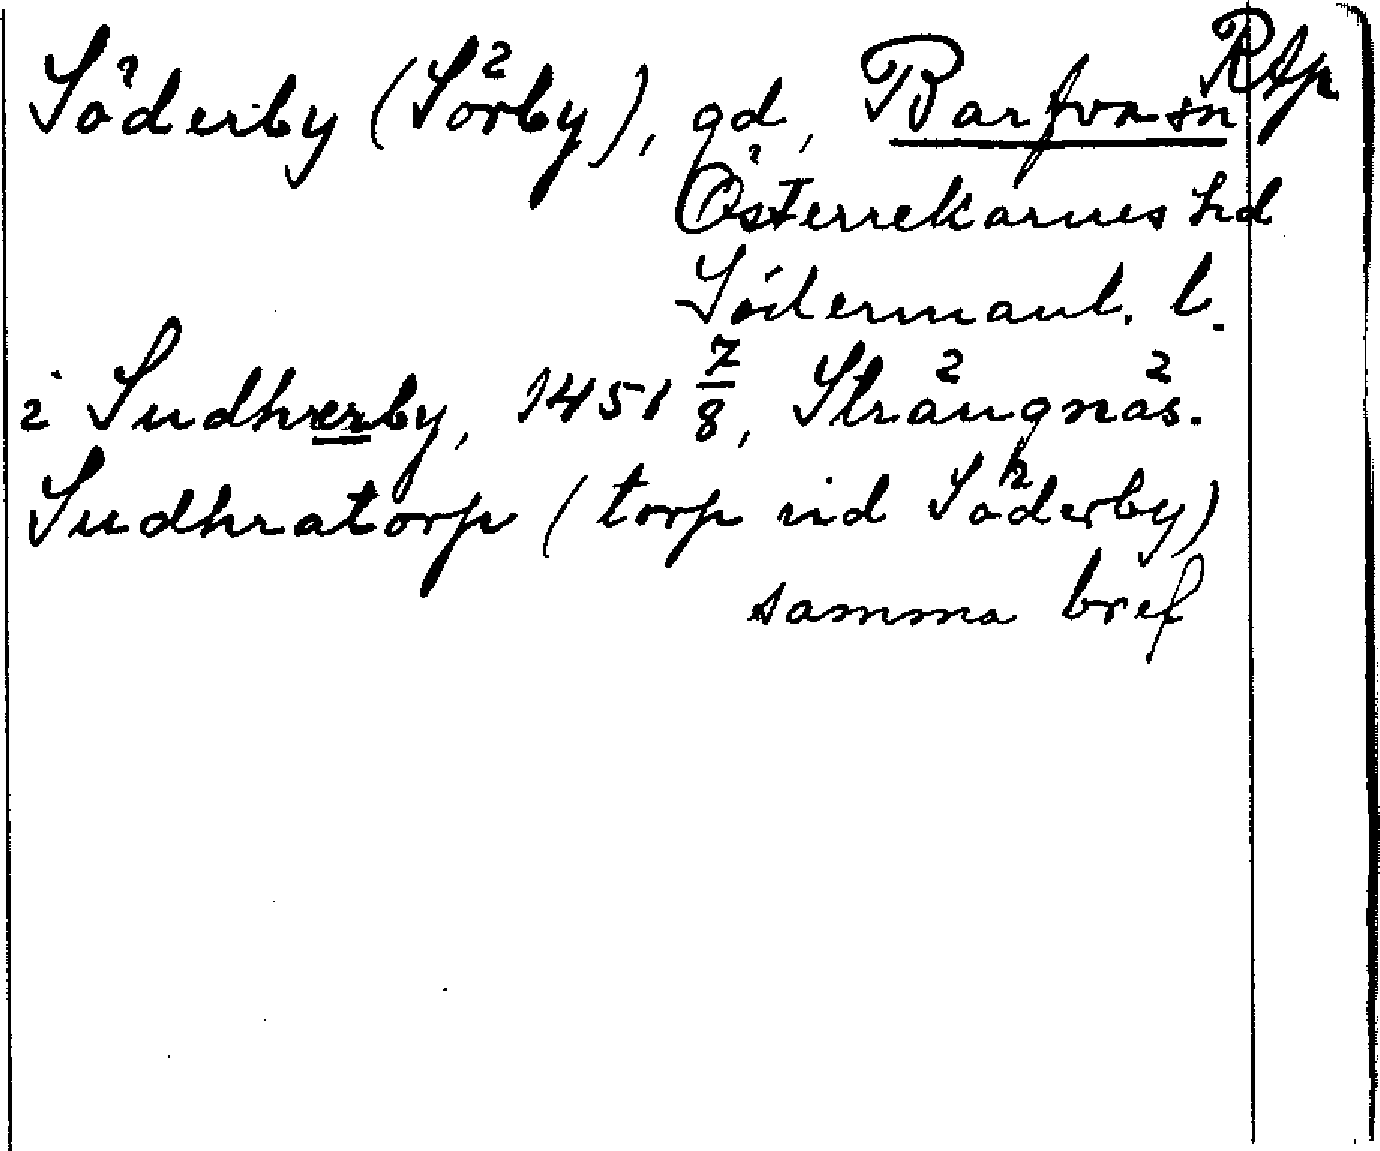 Söderby (Sörby), gd, Barfva sn Rtp
Österrekarnes hd
Södermanl. l.
i Sudhrerby, 1451 7/8, Strängnäs.
Sudhratorp (torp vid Söderby)
samma bref